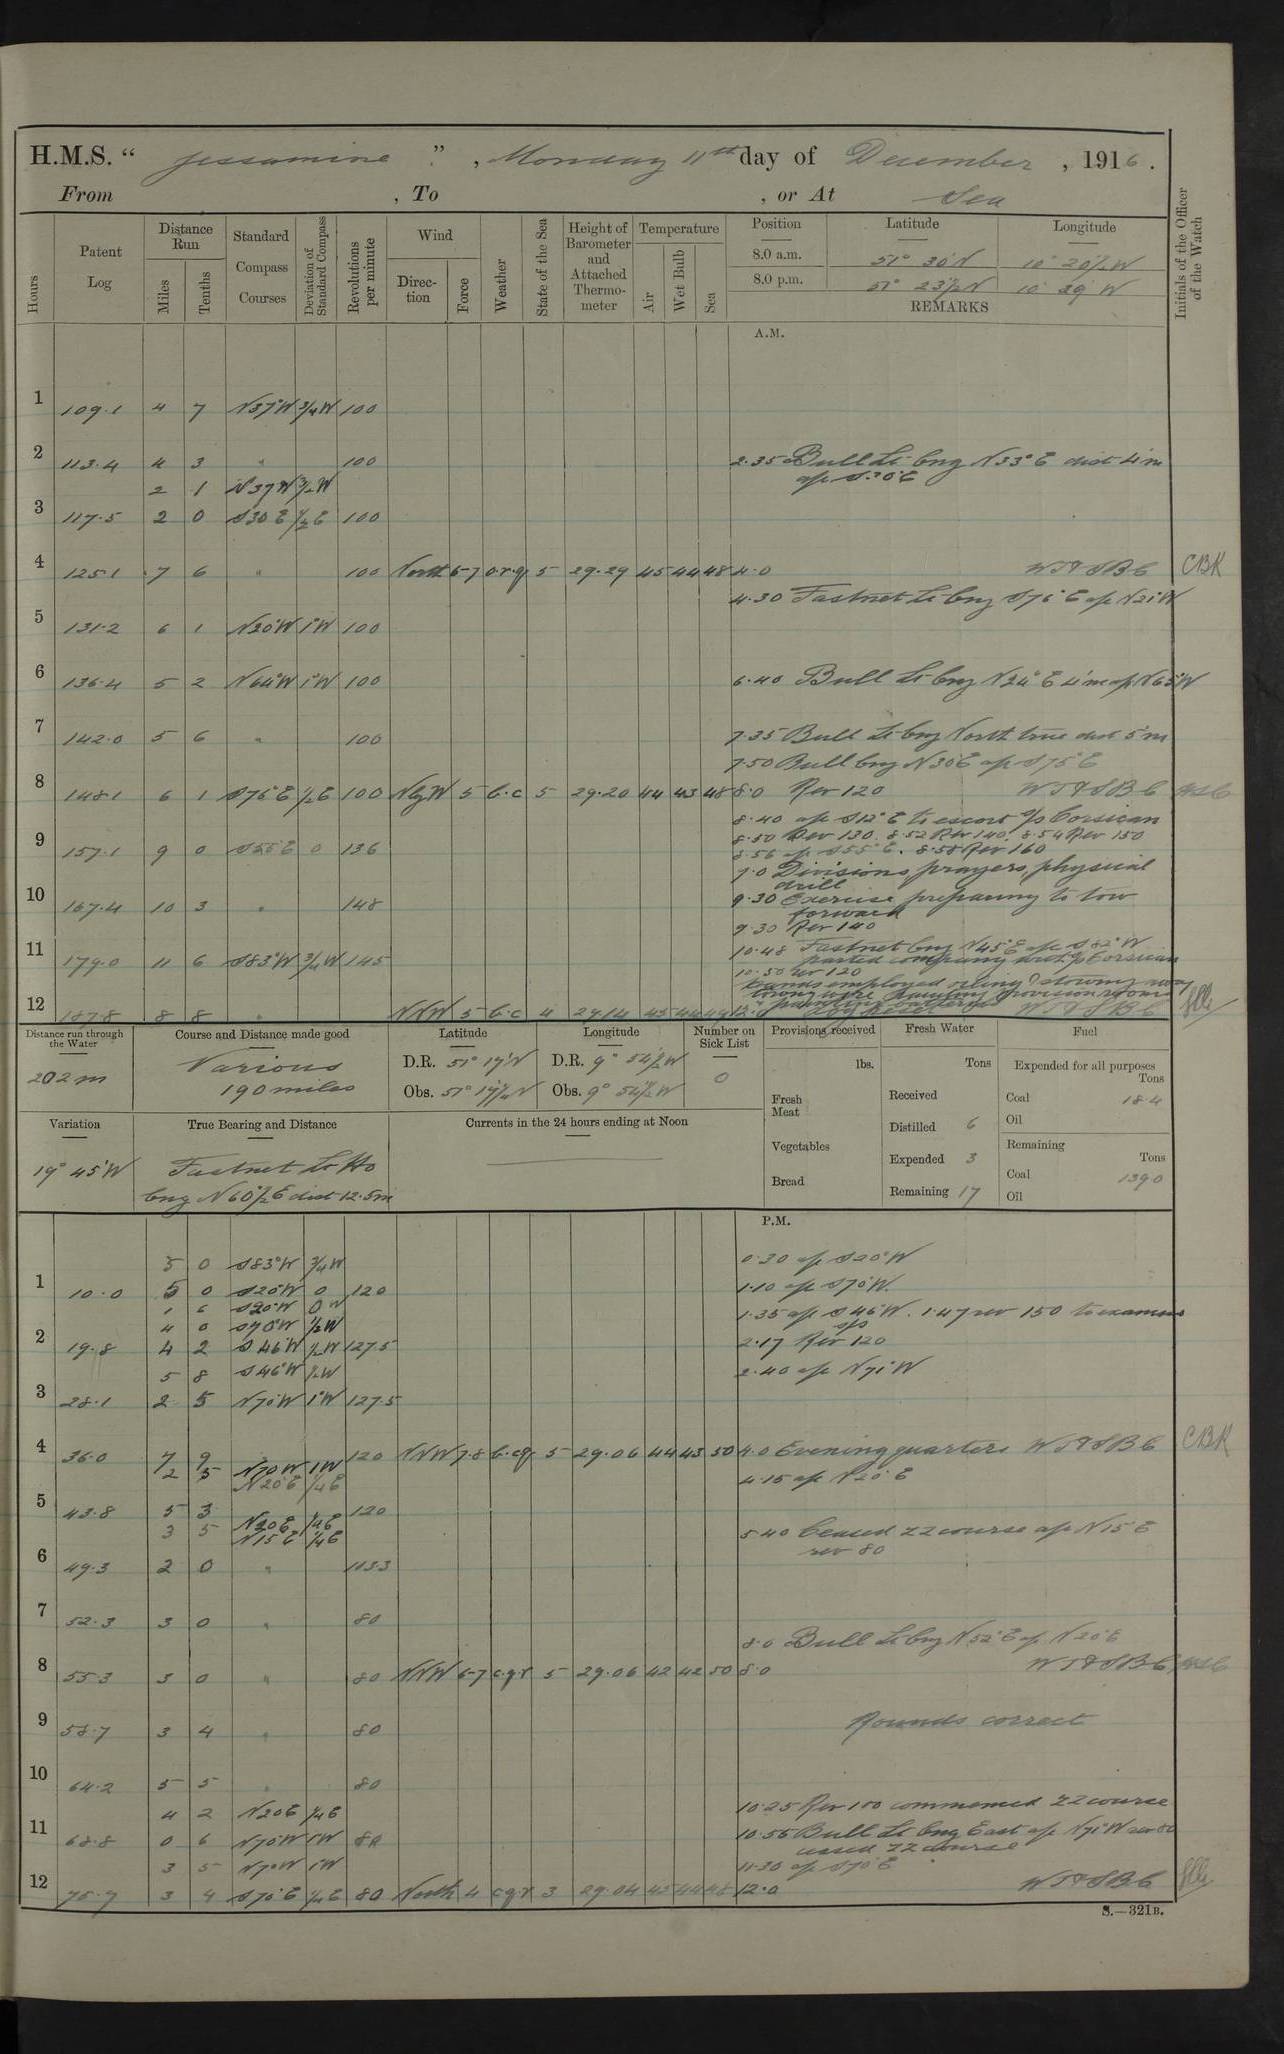 H.M.S. “ Jessamine ” , Monday 11th day of December , 1916 .
From , To , or At Sea
Hours
Patent Log
Distance Run
Miles
Tenths
Standard Compass Courses
Deviation of Standard Compass
Revolutions per minute
Wind
Direction
Force
Weather
State of the Sea
Height of Barometer and Attached Thermometer
Temperature
Air
Wet Bulb
Sea
Position
Latitude
Longitude
8.0 a.m. 51° 30' N 10° 20½ W
8.0 p.m. 51° 23½ N 10° 29' W
REMARKS
Initials of the Officer of the Watch
A.M.
1 109.1 4 7 N37°W ¾W 100
2 113.4 4 3 " 100 2.35 Bull Lt brg N33°E dist 4'm
a/c S30°E
2 1 N37W ¾W
3 117.5 2 0 S30E ½E 100
4 125.1 7 6 " 100 North 6-7 o.r.q 5 29.29 45 44 48 4.0 W T & S B C CBK
4.30 Fastnet Lt brg S76°E a/c N21°W
5 131.2 6 1 N20°W 1°W 100
6 136.4 5 2 N64°W 1°W 100 6.40 Bull Lt brg N24°E 4'm a/c N65°W
7 142.0 5 6 " 100 7.35 Bull Lt brg North true dist 5'm
7.50 Bull brg N30E a/c S75°E
8 148.1 6 1 S76°E ½E 100 NbyW 5 b.c 5 29.20 44 43 48 8.0 Rev 120 W T & S B C
8.40 a/c S12°E to escort S/S Corsican
8.50 Rev 130. 8.52 Rev 140. 8.54 Rev 150
8.56 a/c S55°E. 8.58 Rev 160
9 157.1 9 0 S55°E 0 136
9.0 Divisions, prayers, physical
drill
10 167.4 10 3 " 148 9.30 Exercise preparing to tow
forward
9.30 Rev 140
10.48 Fastnet brg N45°E a/c S82°W
11 179.0 11 6 S83°W ¾W 145 parted company with S/S Corsican
10.50 rev 120
Hands employed & stowing away
towing wire provision rooms
12 187.8 8 8 " NNW 5 b.c 4 29.14 45 44 49 12.0 W T & S B C
Distance run through the Water
202m
Course and Distance made good
Various
190 miles
Latitude
D.R. 51° 19' N
Obs. 51° 19¼ N
Longitude
D.R. 9° 54½ W
Obs. 9° 54½ W
Number on Sick List
0
Provisions received
lbs.
Fresh Meat
Vegetables
Bread
Fresh Water
Tons
Received
Distilled 6
Expended 3
Remaining 17
Fuel
Expended for all purposes
Tons
Coal 18.4
Oil
Remaining
Tons
Coal 139.0
Oil
Variation
19° 45'W
True Bearing and Distance
Fastnet Lt Ho
brg N60½E dist 12.5m
Currents in the 24 hours ending at Noon
P.M.
5 0 S83°W ¾W 0.30 a/c S20°W
1 10.0 5 0 S20°W 0 120 1.10 a/c S70°W.
1 6 S20°W 0 W 1.35 a/c S46°W. 1.47 rev 150 to examine
4 0 S70°W ½W S/S
2 19.8 4 2 S46W ½W 127.5 2.17 Rev 120
5 8 S46°W ½W 2.40 a/c N71°W
3 28.1 2 5 N70W 1°W 127.5
4 36.0 7 9 120 NNW 7.8 b.cq 5 29.06 44 43 50 4.0 Evening quarters W T & S B C CBK
2 5 N70W 1W
N20°E ¼E 4.15 a/c N20°E
5 43.8 5 3 120
3 5 N20E ¼E 5.40 Ceased ZZ course a/c N15°E
N15°E ¼E rev 80
6 49.3 2 0 " 113.3
7 52.3 3 0 " 80
8.0 Bull Lt brg N52°E a/c N20°E
8 55.3 3 0 " 80 NNW 6-7 c.q.r 5 29.06 42 42 50 8.0 W T & S B C
9 58.7 3 4 " 80 Rounds correct
10 64.2 5 5 " 80
4 2 N20E ¼E 10.25 Rev 100 commenced ZZ course
11 68.8 0 6 N70W 1W 80 10.55 Bull Lt brg East a/c N71°W rev 80
ceased ZZ course
3 5 N70W 1W 11.30 a/c S70°E
12 75.7 3 4 S70°E ¼E 80 North 4 c.q.r 3 29.04 45 44 48 12.0 W T & S B C
S.—321B.